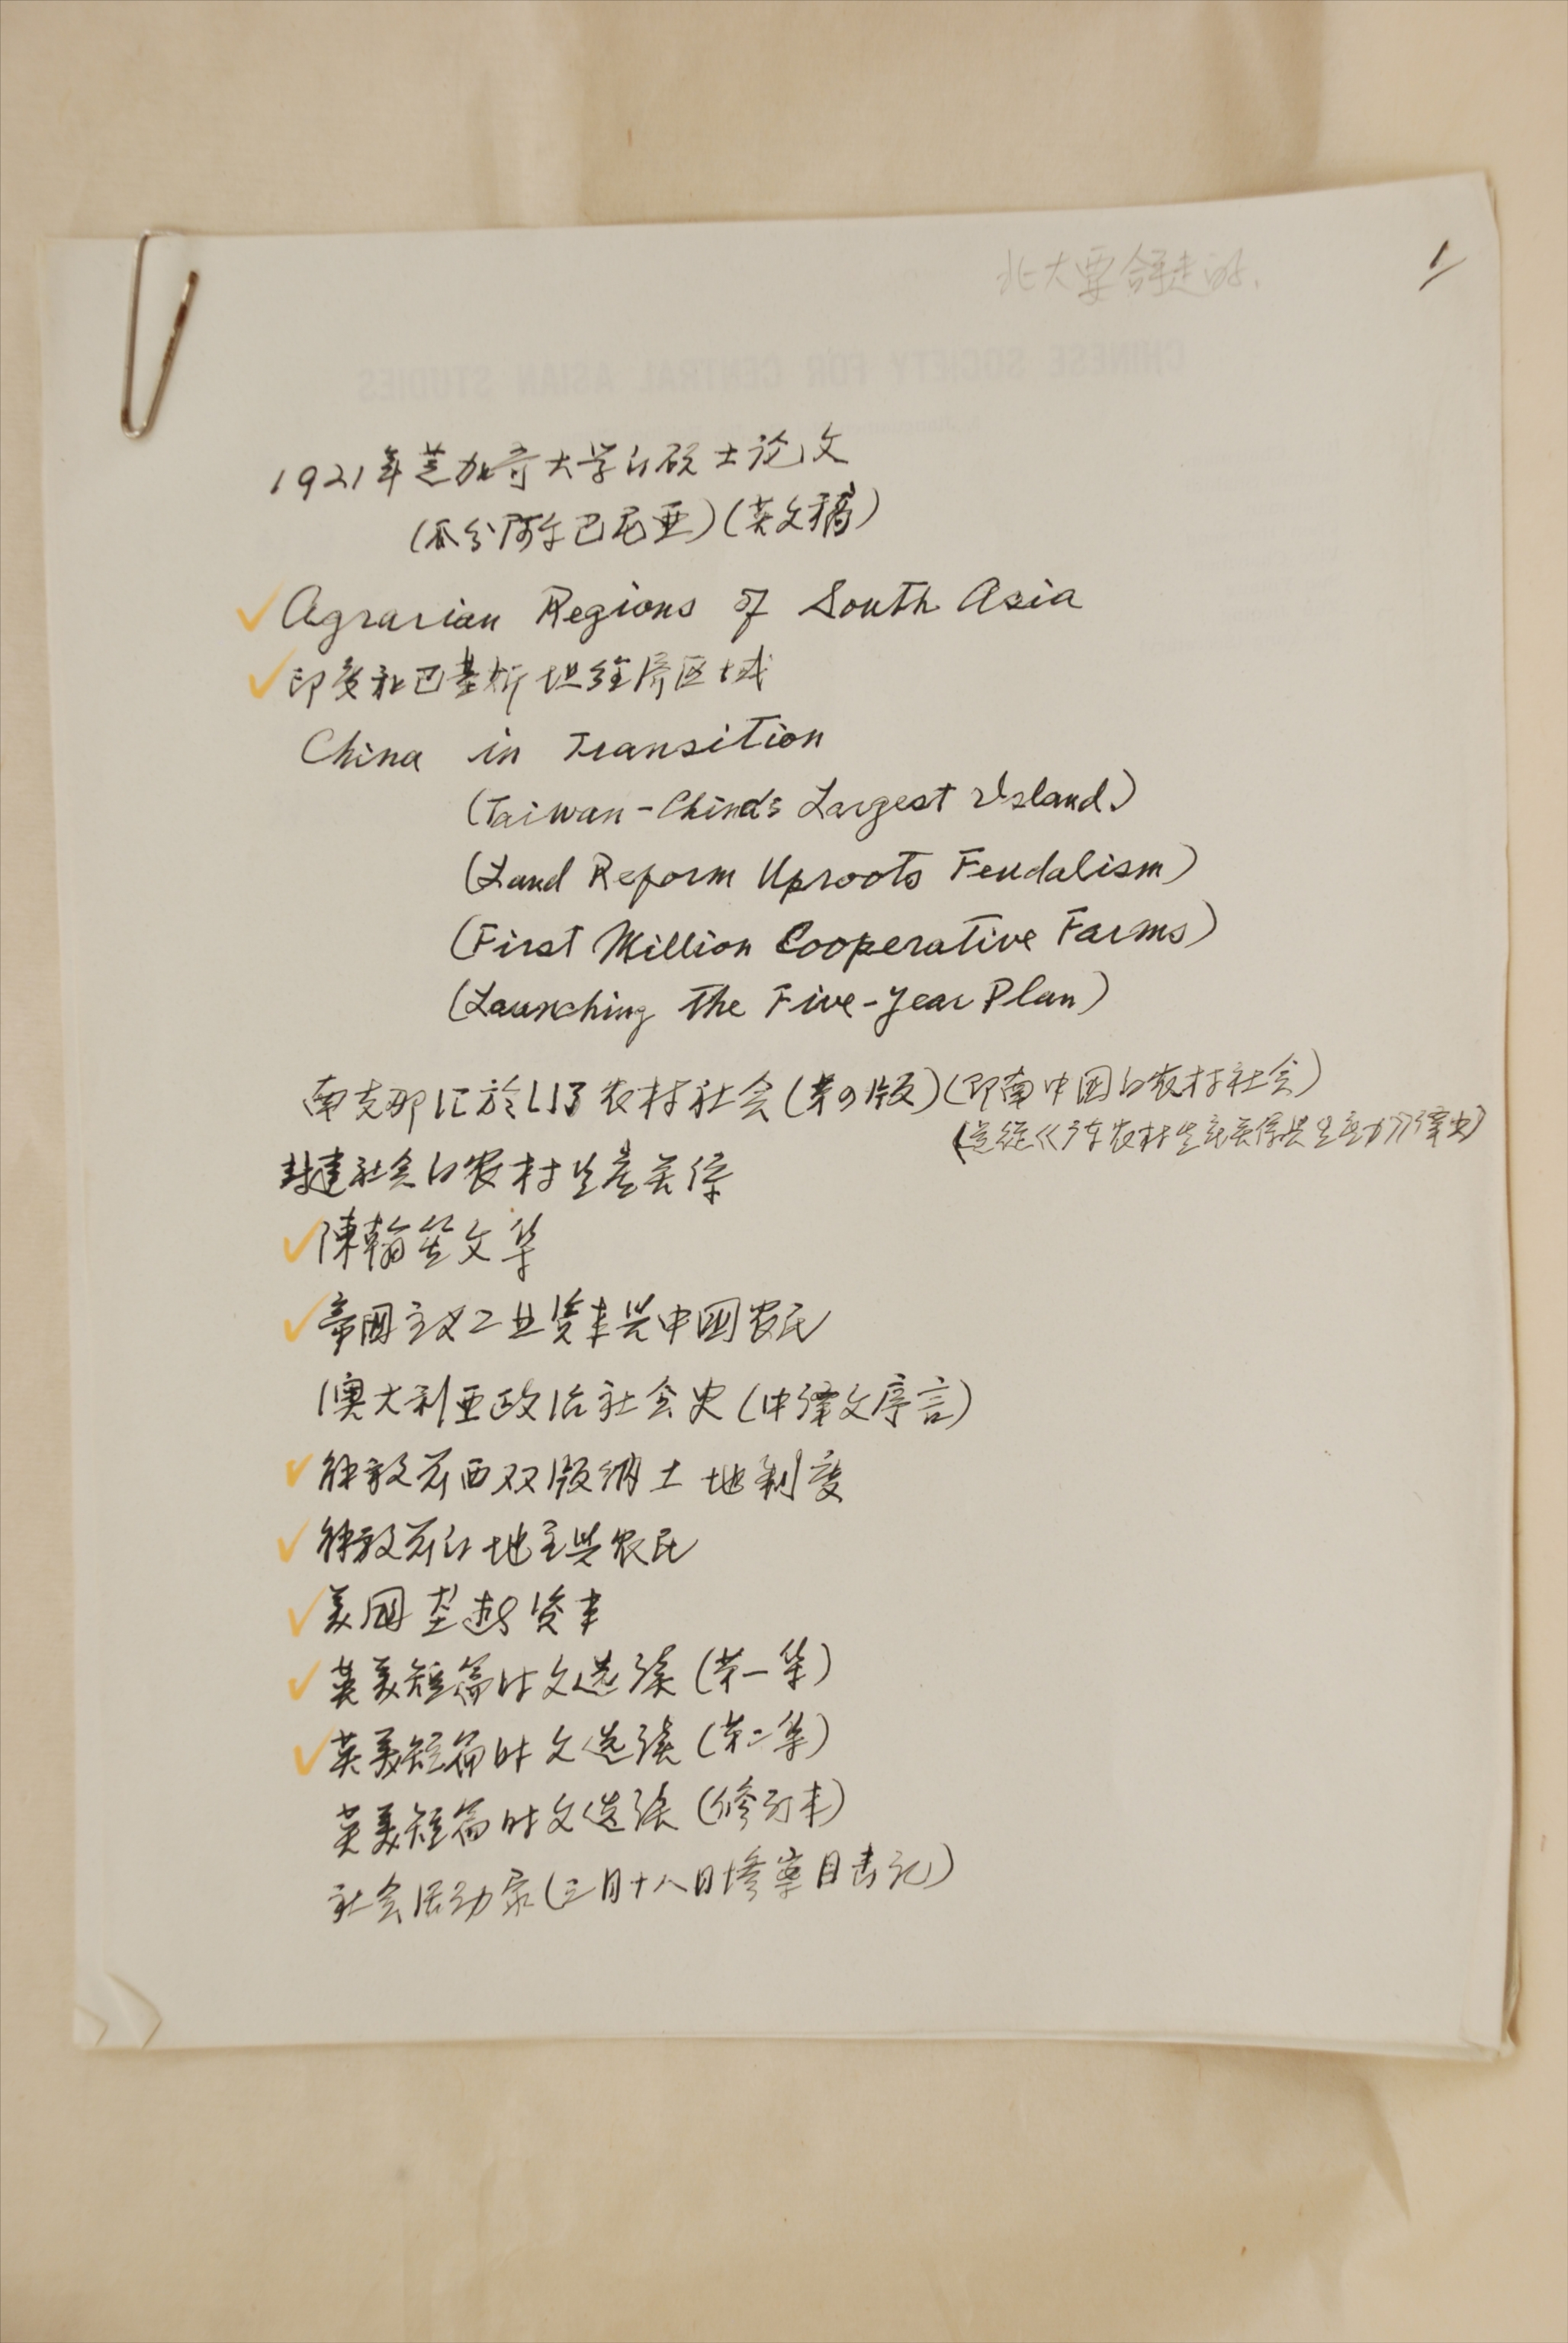 北大要拿走的.
1
CHINESE SOCIETY FOR CENTRAL ASIAN STUDIES
1921年芝加哥大学的硕士论文
(瓜分阿尔巴尼亚)(英文稿)
✓ Agrarian Regions of South Asia
✓ 印度和巴基斯坦经济区域
China in Transition
(Taiwan-China's Largest Island.)
(Land Reform Uproots Feudalism)
(First Million Cooperative Farms)
(Launching The Five-Year Plan)
南支那に於ける农村社会(第9版)(即南中国的农村社会)
(这从《广东农村生产关系与生产力》译出)
封建社会的农村生产关系
✓ 陳翰笙文华
✓ 帝國主义工业资本与中國农民
澳大利亚政治社会史(中译文序言)
✓ 解放前西双版纳土地制度
✓ 解放前的地主与农民
✓ 美國垄断资本
✓ 英美短篇时文选读(第一集)
✓ 英美短篇时文选读(第二集)
英美短篇时文选读(修订本)
社会活动家(三月十八日惨案目击记)